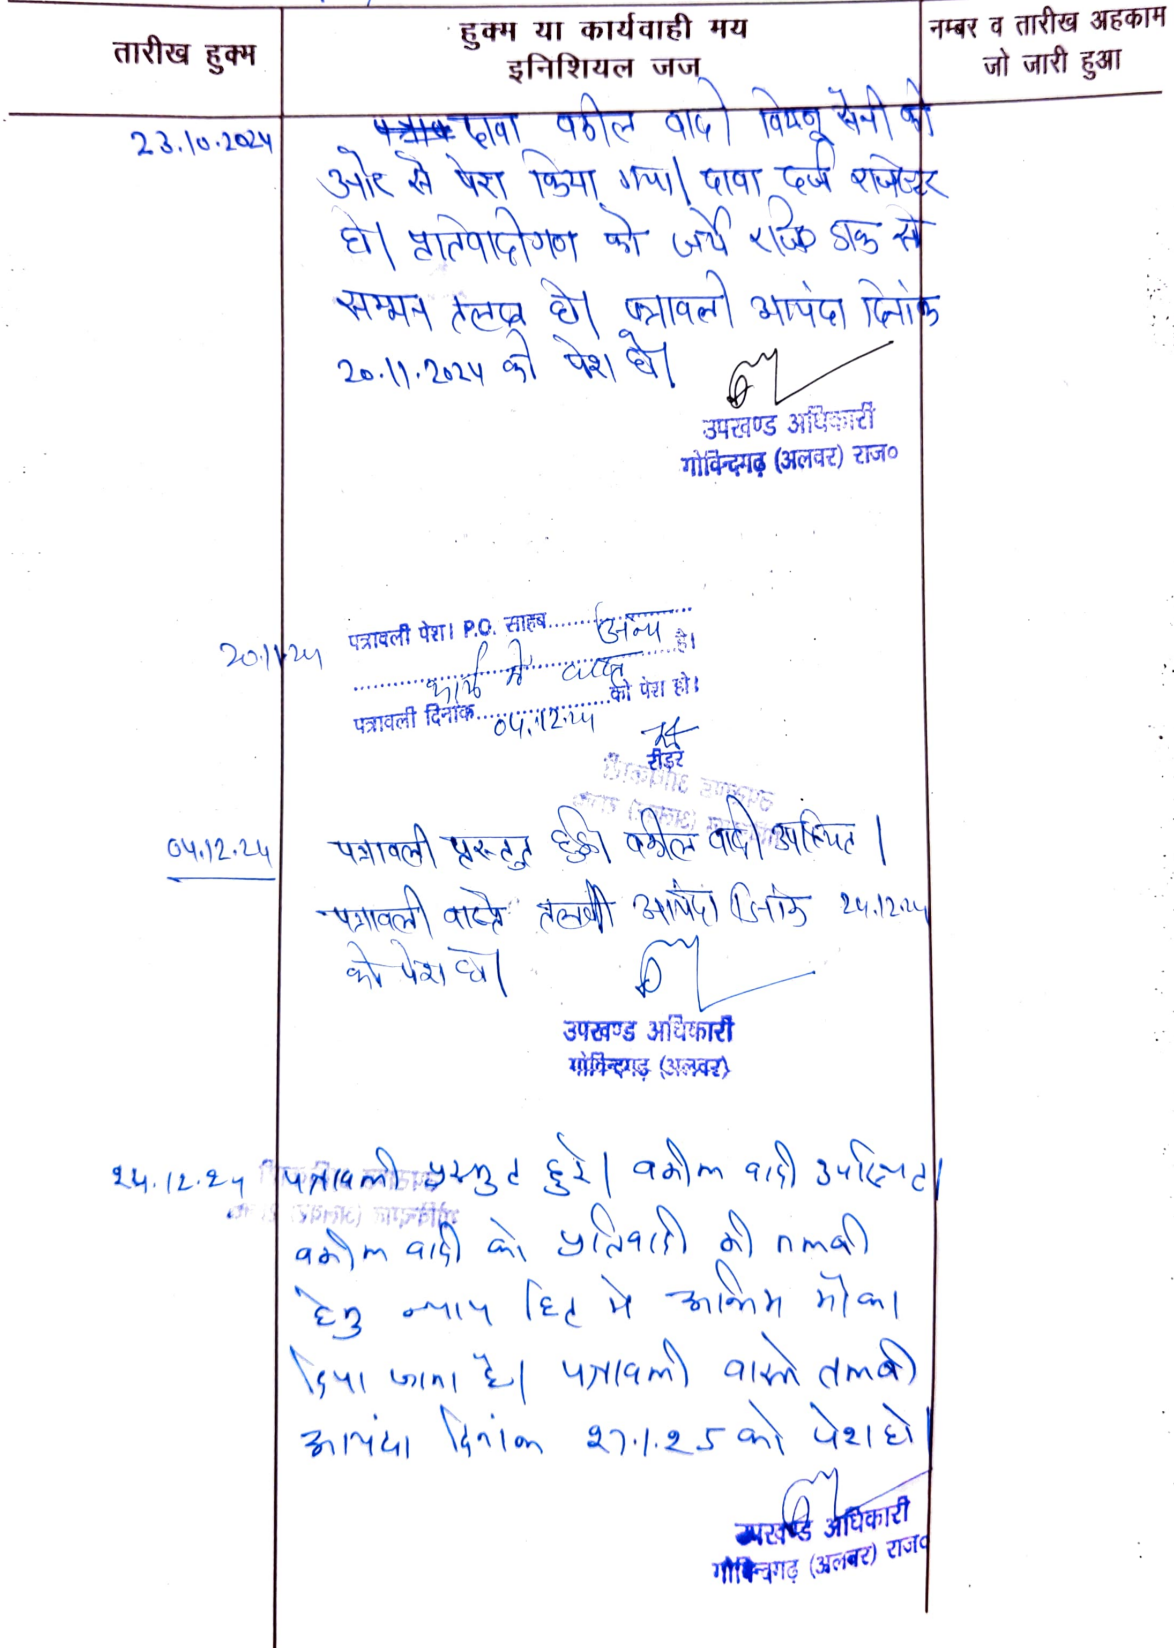 तारीख हुक्म
हुक्म या कार्यवाही मय
इनिशियल जज
नम्बर व तारीख अहकाम
जो जारी हुआ
23.10.2024
दावा वकील वादी विष्णु सैनी की
ओर से पेश किया गया। दावा दर्ज रजिस्टर
हो। प्रतिवादीगण को जर्ये रजि० डाक से
सम्मन तलब हो। पत्रावली आयंदा दिनांक
20.11.2024 को पेश हो।
उपखण्ड अधिकारी
गोविन्दगढ़ (अलवर) राज०
20.11.24
पत्रावली पेश। P.O. साहब........अन्य
कार्य में व्यस्त है।
पत्रावली दिनांक 04.12.24 को पेश हो।
रीडर
04.12.24
पत्रावली प्रस्तुत हुई। वकील वादी उपस्थित।
पत्रावली वास्ते तलबी आयंदा दिनांक 24.12.24
को पेश हो।
उपखण्ड अधिकारी
गोविन्दगढ़ (अलवर)
24.12.24
पत्रावली प्रस्तुत हुई। वकील वादी उपस्थित।
वकील वादी को प्रतिवादी की तलबी
हेतु न्याय हित मे अन्तिम मौका
दिया जाता है। पत्रावली वास्ते तलबी
आयंदा दिनांक 27.1.25 को पेश हो।
उपखण्ड अधिकारी
गोविन्दगढ़ (अलवर) राज०